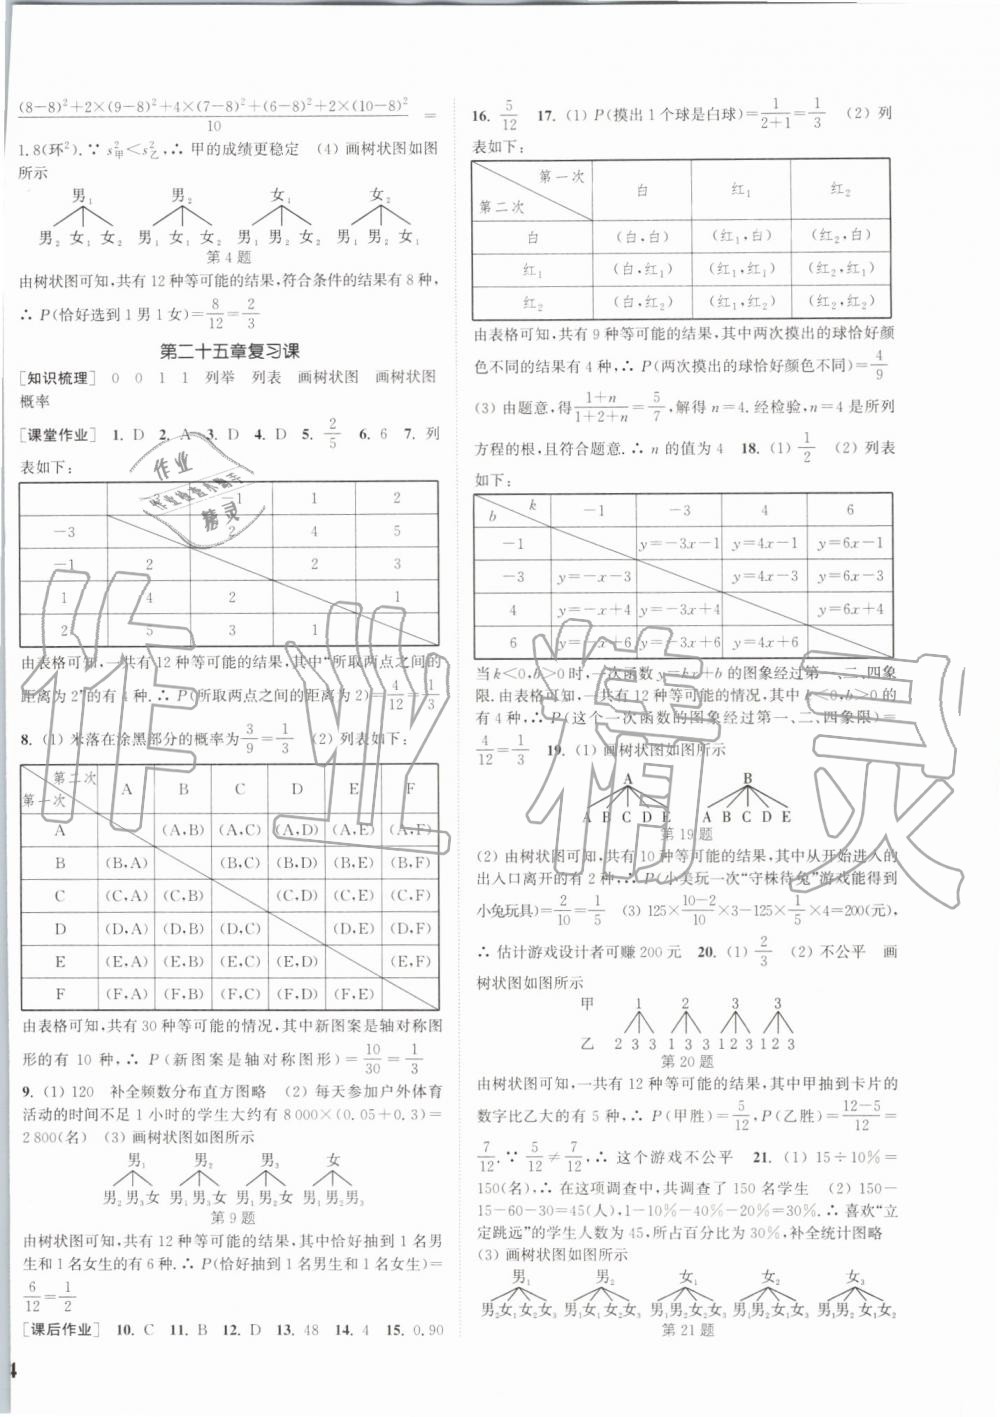 (8-8)²+2×(9-8)²+4×(7-8)²+(6-8)²+2×(10-8)²
10
=
1.8(环²).∵ s²甲<s²乙,∴ 甲的成绩更稳定 (4) 画树状图如图
所示
男₁ 男₂ 女₁ 女₂
男₂ 女₁ 女₂ 男₁ 女₁ 女₂ 男₁ 男₂ 女₂ 男₁ 男₂ 女₁
第4题
由树状图可知,共有12种等可能的结果,符合条件的结果有8种,
∴ P(恰好选到1男1女)=8/12=2/3
第二十五章复习课
[知识梳理] 0 0 1 1 列举 列表 画树状图 画树状图
概率
[课堂作业] 1. D 2. A 3. D 4. D 5. 2/5 6. 6 7. 列
表如下:
-1 1 2
-3 2 4 5
-1 2 2 3
1 4 2 1
2 5 3 1
由表格可知,一共有12种等可能的结果,其中“所取两点之间的
距离为2”的有4种.∴ P(所取两点之间的距离为2)=4/12=1/3
8. (1) 米落在涂黑部分的概率为3/9=1/3 (2) 列表如下:
第二次
第一次
A B C D E F
A (A,B) (A,C) (A,D) (A,E) (A,F)
B (B,A) (B,C) (B,D) (B,E) (B,F)
C (C,A) (C,B) (C,D) (C,E) (C,F)
D (D,A) (D,B) (D,C) (D,E) (D,F)
E (E,A) (E,B) (E,C) (E,D) (E,F)
F (F,A) (F,B) (F,C) (F,D) (F,E)
由表格可知,共有30种等可能的情况,其中新图案是轴对称图
形的有10种,∴ P(新图案是轴对称图形)=10/30=1/3
9. (1) 120 补全频数分布直方图略 (2) 每天参加户外体育
活动的时间不足1小时的学生大约有8 000×(0.05+0.3)=
2 800(名) (3) 画树状图如图所示
男₁ 男₂ 男₃ 女
男₂男₃女 男₁男₃女 男₁男₂女 男₁男₂男₃
第9题
由树状图可知,共有12种等可能的结果,其中恰好抽到1名男
生和1名女生的有6种.∴ P(恰好抽到1名男生和1名女生)=
6/12=1/2
[课后作业] 10. C 11. B 12. D 13. 48 14. 4 15. 0.90
4
16. 5/12 17. (1) P(摸出1个球是白球)=1/(2+1)=1/3 (2) 列
表如下:
第一次
第二次
白 红₁ 红₂
白 (白,白) (红₁,白) (红₂,白)
红₁ (白,红₁) (红₁,红₁) (红₂,红₁)
红₂ (白,红₂) (红₁,红₂) (红₂,红₂)
由表格可知,共有9种等可能的结果,其中两次摸出的球恰好颜
色不同的结果有4种,∴ P(两次摸出的球恰好颜色不同)=4/9
(3) 由题意,得(1+n)/(1+2+n)=5/7,解得n=4.经检验,n=4是所列
方程的根,且符合题意.∴ n的值为4 18. (1) 1/2 (2) 列表
如下:
k
b
-1 -3 4 6
-1 y=-3x-1 y=4x-1 y=6x-1
-3 y=-x-3 y=4x-3 y=6x-3
4 y=-x+4 y=-3x+4 y=6x+4
6 y=-x+6 y=-3x+6 y=4x+6
当k<0,b>0时,一次函数y=kx+b的图象经过第一、二、四象
限.由表格可知,一共有12种等可能的情况,其中k<0,b>0的
有4种,∴ P(这个一次函数的图象经过第一、二、四象限)=
4/12=1/3 19. (1) 画树状图如图所示
A B
A B C D E A B C D E
第19题
(2) 由树状图可知,共有10种等可能的结果,其中从开始进入的
出入口离开的有2种,∴ P(小美玩一次“守株待兔”游戏能得到
小兔玩具)=2/10=1/5 (3) 125×(10-2)/10×3-125×1/5×4=200(元),
∴ 估计游戏设计者可赚200元 20. (1) 2/3 (2) 不公平 画
树状图如图所示
甲 1 2 3 3
乙 2 3 3 1 3 3 1 2 3 1 2 3
第20题
由树状图可知,一共有12种等可能的结果,其中甲抽到卡片的
数字比乙大的有5种,∴ P(甲胜)=5/12,P(乙胜)=(12-5)/12=
7/12.∵ 5/12≠7/12,∴ 这个游戏不公平 21. (1) 15÷10%=
150(名),∴ 在这项调查中,共调查了150名学生 (2) 150-
15-60-30=45(人),1-10%-40%-20%=30%.∴ 喜欢“立
定跳远”的学生人数为45,所占百分比为30%,补全统计图略
(3) 画树状图如图所示
男₁ 男₂ 女₁ 女₂ 女₃
男₂女₁女₂女₃ 男₁女₁女₂女₃ 男₁男₂女₂女₃ 男₁男₂女₁女₃ 男₁男₂女₁女₂
第21题
作业
精灵
作业精灵